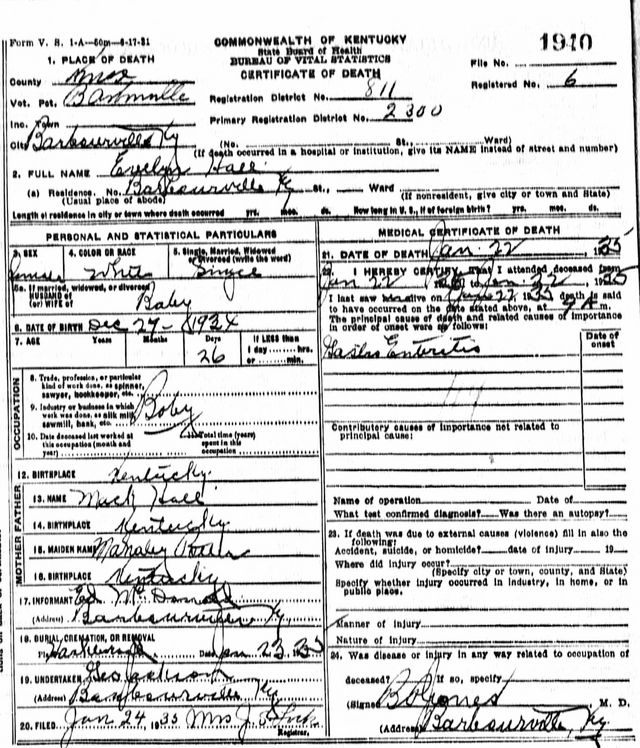 Form V. S. 1-A—50m—8-17-31
COMMONWEALTH OF KENTUCKY
State Board of Health
BUREAU OF VITAL STATISTICS
CERTIFICATE OF DEATH
1940
File No.
Registered No. 6
1. PLACE OF DEATH
County Knox
Vot. Pct. Barbourville
Registration District No. 811
Inc. Town
Primary Registration District No. 2300
City Barbourville Ky
(No. St., Ward)
(If death occurred in a hospital or institution, give its NAME instead of street and number)
2. FULL NAME Evelyn Hall
(a) Residence. No. Barbourville Ky St., Ward
(Usual place of abode) (If nonresident, give city or town and State)
Length of residence in city or town where death occurred yrs. mos. ds. How long in U. S., if of foreign birth? yrs. mos. ds.
PERSONAL AND STATISTICAL PARTICULARS
3. SEX 4. COLOR OR RACE 5. Single, Married, Widowed
or Divorced (write the word)
Female White Single
5a. If married, widowed, or divorced
HUSBAND of
(or) WIFE of Baby
6. DATE OF BIRTH Dec 27- 1934
7. AGE Years Months Days If LESS than
1 day hrs.
or min.
26
OCCUPATION
8. Trade, profession, or particular
kind of work done, as spinner,
sawyer, bookkeeper, etc.
9. Industry or business in which
work was done, as silk mill,
sawmill, bank, etc. Baby
10. Date deceased last worked at
this occupation (month and
year)
11. Total time (years)
spent in this
occupation
12. BIRTHPLACE Kentucky
FATHER
13. NAME Mack Hall
14. BIRTHPLACE Kentucky
MOTHER
15. MAIDEN NAME
16. BIRTHPLACE Kentucky
17. INFORMANT Ed McDonald
(Address) Barbourville Ky.
18. BURIAL, CREMATION, OR REMOVAL
Date Jan 23, 35
19. UNDERTAKER Geo Jackson
(Address) Barbourville Ky
20. FILED Jan 24, 1935 Mrs J.
Registrar.
MEDICAL CERTIFICATE OF DEATH
21. DATE OF DEATH Jan. 22, 1935
22. I HEREBY CERTIFY, That I attended deceased from
Jan 22 to Jan 22, 1935
I last saw alive on Jan 22 1935 death is said
to have occurred on the date stated above, at m.
The principal cause of death and related causes of importance
in order of onset were as follows:
Date of
onset
Gastro Enteritis
Contributory causes of importance not related to
principal cause:
Name of operation Date of
What test confirmed diagnosis? Was there an autopsy?
23. If death was due to external causes (violence) fill in also the
following:
Accident, suicide, or homicide? date of injury 19
Where did injury occur?
(Specify city or town, county, and State)
Specify whether injury occurred in industry, in home, or in
public place.
Manner of injury
Nature of injury
24. Was disease or injury in any way related to occupation of
deceased? If so, specify
(Signed) Jones, M. D.
(Address) Barbourville, Ky